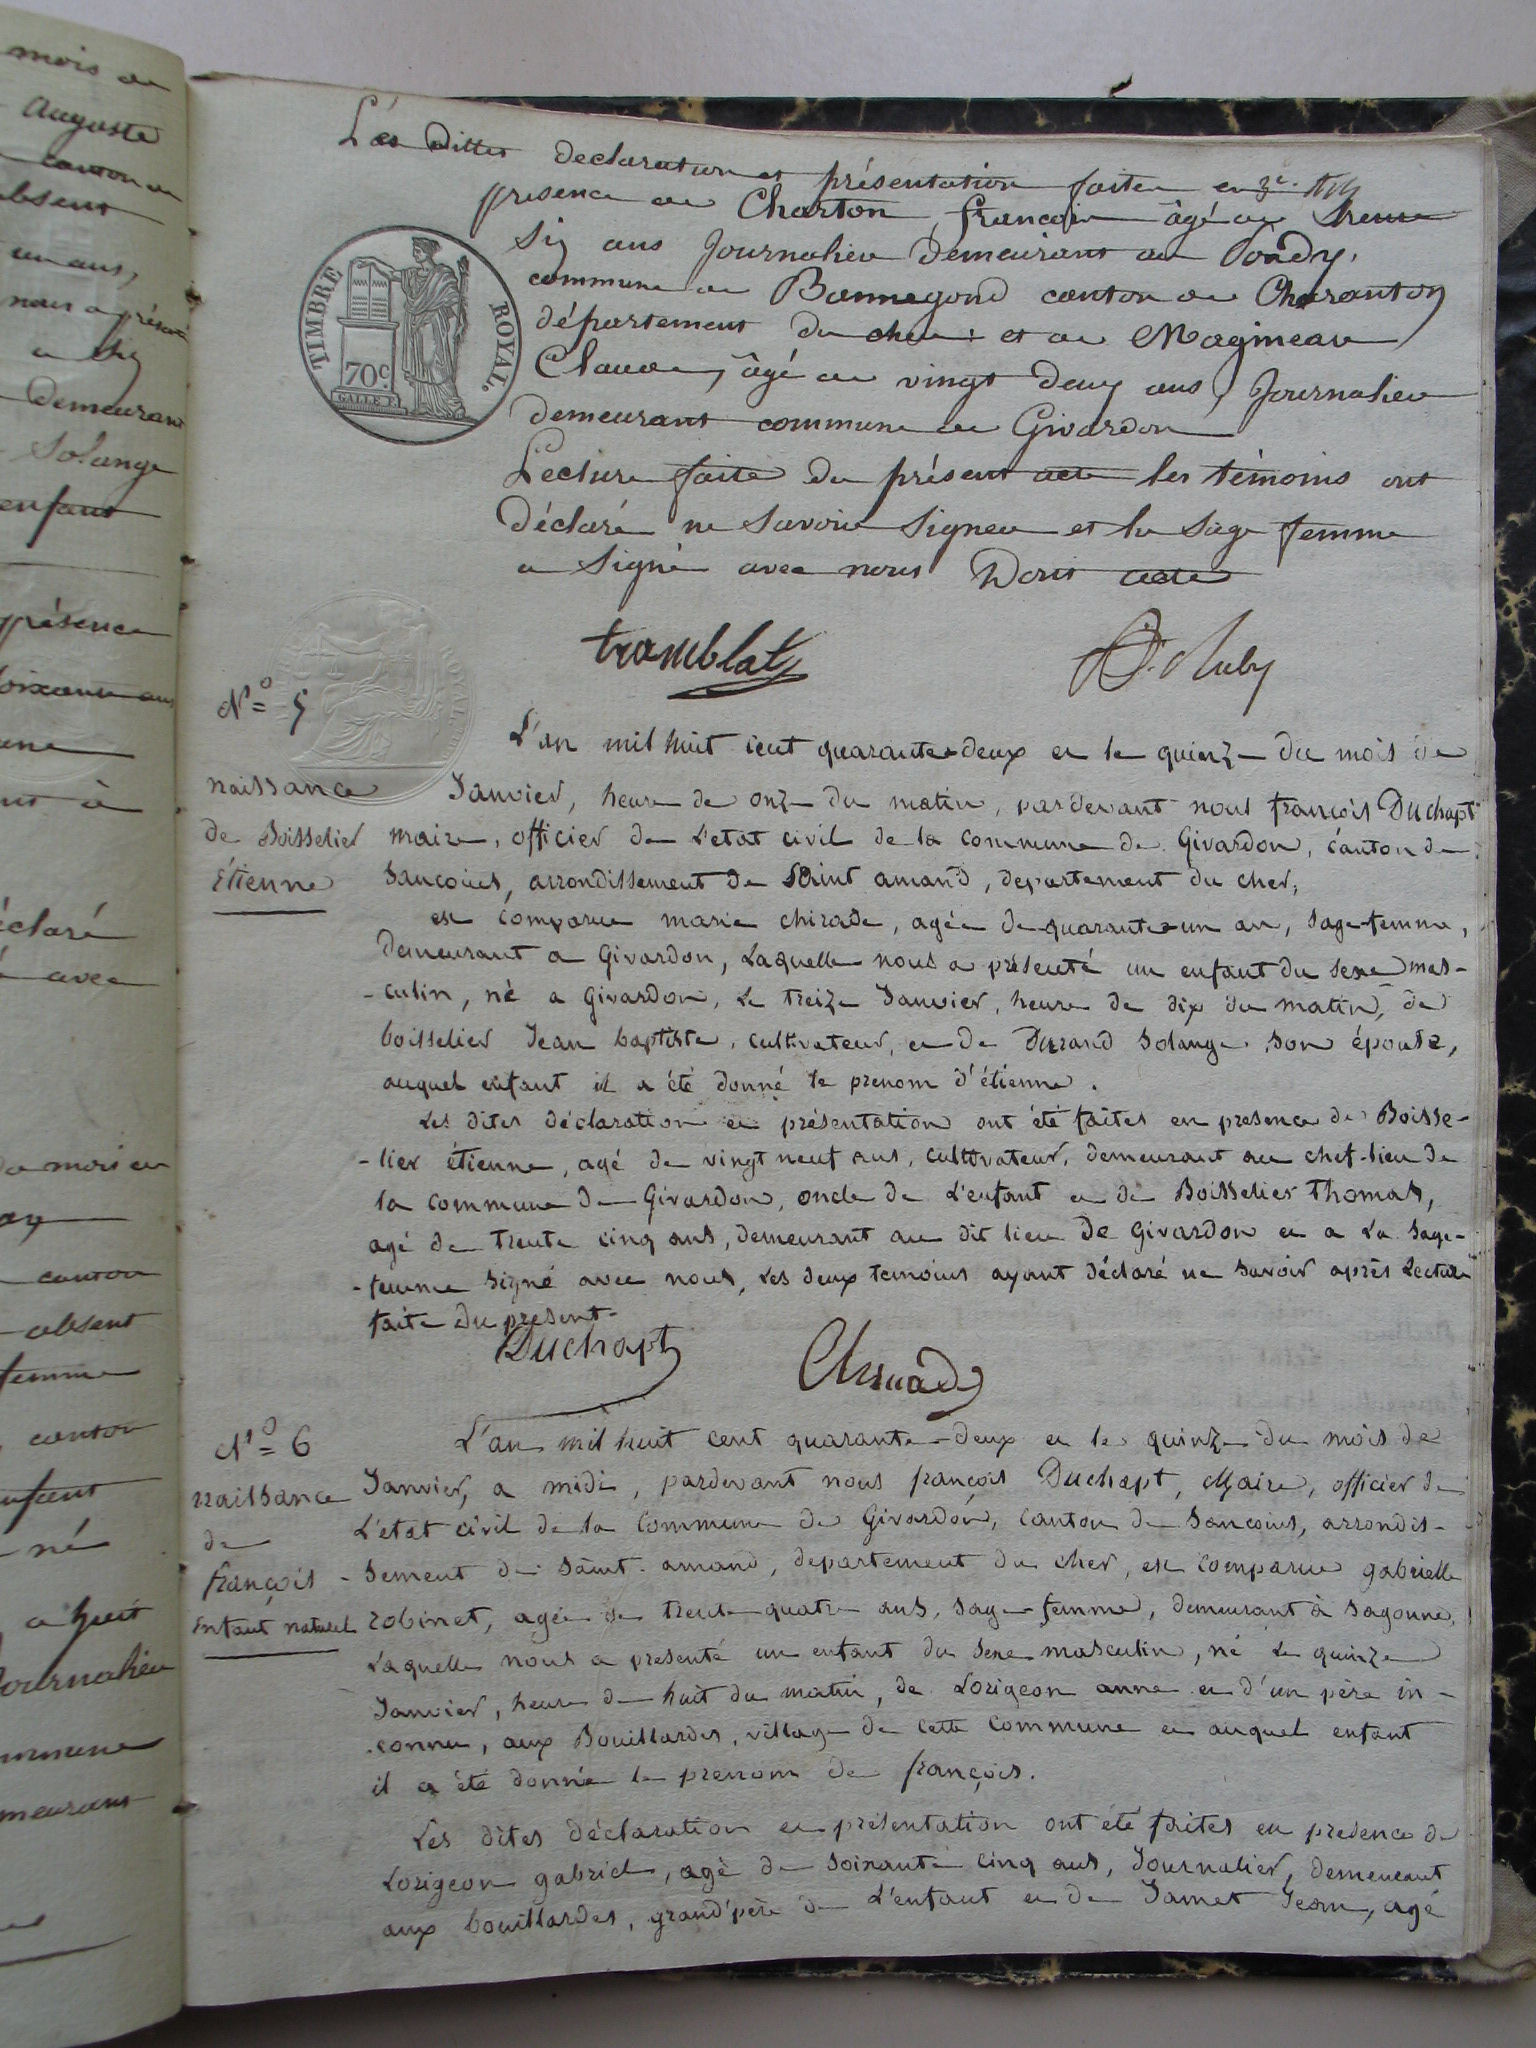 mois de
Auguste
canton de
absent
un ans,
nous a présenté
demeurant
Solange
enfant
présence
une
déclaré
avec
du mois de
canton
absent
femme
canton
né
a huit
Journalier
commune
demeurant
Les dittes declaration et présentation faite en
presence de Charton françois âgé de trente
Six ans Journalier demeurant au Pondy,
commune de Bannegond canton de Charanton
département du cher : et de Magineau
Claude, âgé de vingt deux ans, Journalier
demeurant commune de Givardon
Lecture faite du présent acte les témoins ont
Déclaré ne Savoir Signer et la Sage femme
a Signé avec nous Dont acte
TIMBRE ROYAL.
70c
GALLE F.
tramblat
N.o 5
naissance
de Boisselier
Étienne
L'an mil huit cent quarante-deux et le quinze du mois de
Janvier, heure de onze du matin, pardevant nous françois Duchapt
maire, officier de L'etat civil de la commune de Givardon, canton de
Sancoins, arrondissement de Saint amand, departement du cher,
est comparue marie chirade, agée de quarante-un an, Sage-femme,
Demeurant a Givardon, Laquelle nous a présenté un enfant du sexe mas-
-culin, né a Givardon, Le treize Janvier, heure de dix du matin, de
boisselier Jean baptiste, cultivateur, et de Durand Solange son épouse,
auquel enfant il a été donné le prenom d'étienne.
Les dites déclaration et présentation ont été faites en presence de Boisse-
-lier étienne, agé de vingt neuf ans, cultivateur, demeurant au chef-lieu de
la commune de Givardon, oncle de L'enfant et de Boisselier Thomas,
agé de trente cinq ans, demeurant au dit lieu de Givardon et a La Sage-
-femme signé avec nous, Les deux temoins ayant déclaré ne savoir après Lecture
faite du présent-
Duchapt
N.o 6
naissance
de
françois
Enfant naturel
L'an mil huit cent quarante-deux et le quinze du mois de
Janvier, a midi, pardevant nous françois Duchapt, Maire, officier de
L'etat civil de la Commune de Givardon, canton de Sancoins, arrondis-
sement de Saint-amand, departement du cher, est comparue gabrielle
robinet, agée de trente-quatre ans, sage-femme, demeurant à Sagonne,
Laquelle nous a presenté un enfant du sexe masculin, né Le quinze
Janvier, heure de huit du matin, de Lorigeon anne et d'un père in-
connu, aux Bouillardes, village de cette commune et auquel enfant
il a été donné le prenom de françois.
Les dites déclaration et présentation ont été faites en presence de
Lorigeon gabriel, agé de soixante cinq ans, Journalier, demeurant
aux bouillardes, grand'père de L'enfant et de Jamet Jean, agé